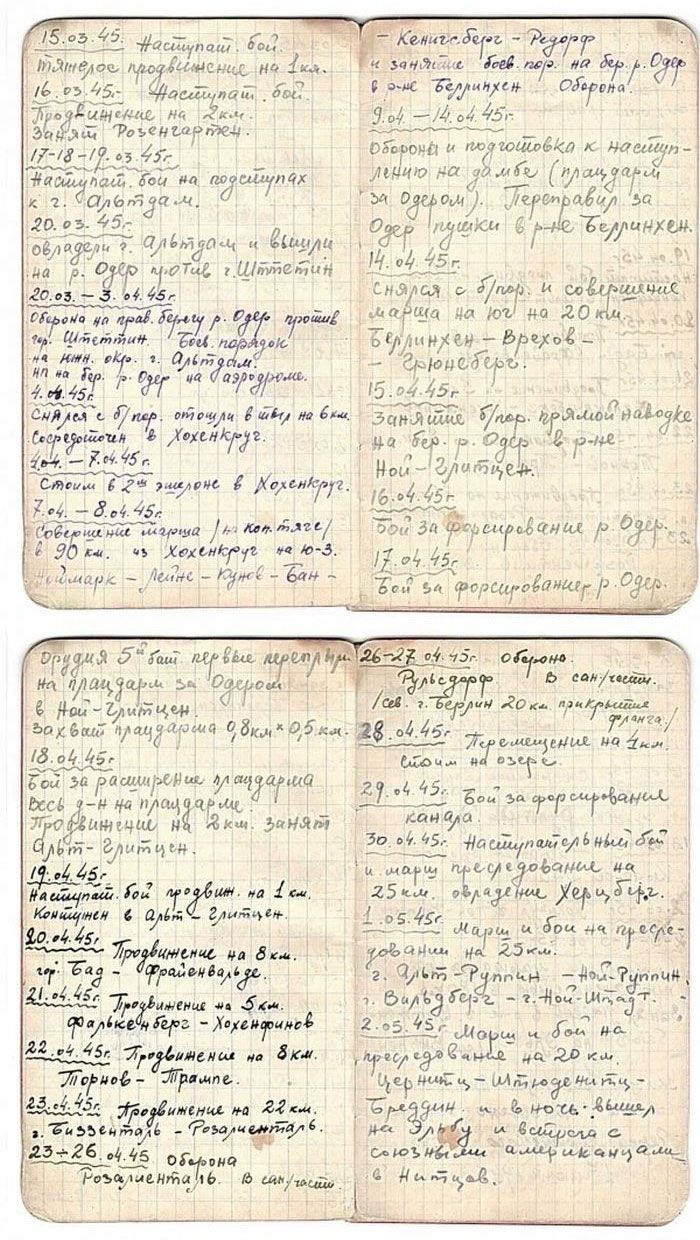 15.03.45. Наступат. бой.
тяжелое продвижение на 1км.
16.03.45г. Наступат. бой.
Продвижение на 2км.
Занят Розенгартен.
17-18-19.03.45г.
Наступат. бои на подступах
к г. Альтдам.
20.03.45г.
овладели г. Альтдам и вышли
на р. Одер против г. Штеттин
20.03. – 3.04.45г.
Оборона на прав. берегу р. Одер против
гор. Штеттин. Боев. порядок
на южн. окр. г. Альтдам.
нп на бер. р. Одер на аэродроме.
4.04.45г.
Снялся с б/пор. отошли в тыл на 6км.
Сосредоточен в Хохенкруг.
4.04. – 7.04.45г.
Стоим в 2ом эшелоне в Хохенкруг.
7.04. – 8.04.45г.
Совершение марша /на кон.тяге/
в 90 км. из Хохенкруг на ю-З.
Ноймарк – Лейне – Кунов – Бан –
– Кенигсберг – Редорф
и занятие боев. пор. на бер. р. Одер
в р-не Беллинхен Оборона.
9.04. – 14.04.45г.
Оборона и подготовка к наступ-
лению на дамбе (плацдарм
за Одером). Переправил за
Одер пушки в р-не Беллинхен.
14.04.45г.
Снялся с б/пор. и совершение
марша на юг на 20 км.
Беллинхен – Врехов –
– Грюнеберг.
15.04.45г.
Занятие б/пор. прямой наводке
на бер. р. Одер в р-не
Ной – Глитцен.
16.04.45г.
Бой за форсирование р. Одер.
17.04.45г.
Бой за форсирование р. Одер.
Орудия 5й бат. первые переплыли
на плацдарм за Одером
в Ной-Глитцен.
Захват плацдарма 0,8км × 0,5км.
18.04.45г.
Бой за расширение плацдарма
Весь д-н на плацдарме.
Продвижение на 2км. занят
Альт-Глитцен.
19.04.45г.
Наступат. бой продвиж. на 1 км.
Контужен в Альт-Глитцен.
20.04.45г. Продвижение на 8км.
гор. Бад – Фрайенвальде.
21.04.45г. Продвижение на 5км.
Фалькенберг – Хохенфинов
22.04.45г. Продвижение на 8км.
Торнов – Трампе.
23.04.45г. Продвижение на 22 км.
г. Бизенталь – Розалиенталь.
23÷26.04.45 Оборона
Розалиенталь. В сан/части.
26-27.04.45г. Оборона.
Рульсдорф В сан/части.
/сев. г. Берлин 20 км. прикрытие
фланга./
28.04.45г. Перемещение на 4км.
стоим на озере.
29.04.45г. Бой за форсирование
канала.
30.04.45г. Наступательный бой
и марш преследование на
25 км. овладение Херцберг.
1.05.45г. Марш и бои на пресле-
довании на 25 км.
г. Альт-Руппин – Ной-Руппин,
г. Вильдберг – г. Ной-Штадт.
2.05.45г Марш и бой на
преследование на 20 км.
Церниц – Штюденитц –
Бреддин. и в ночь вышел
на Эльбу и встреча с
союзными американцами
в Нитцов.